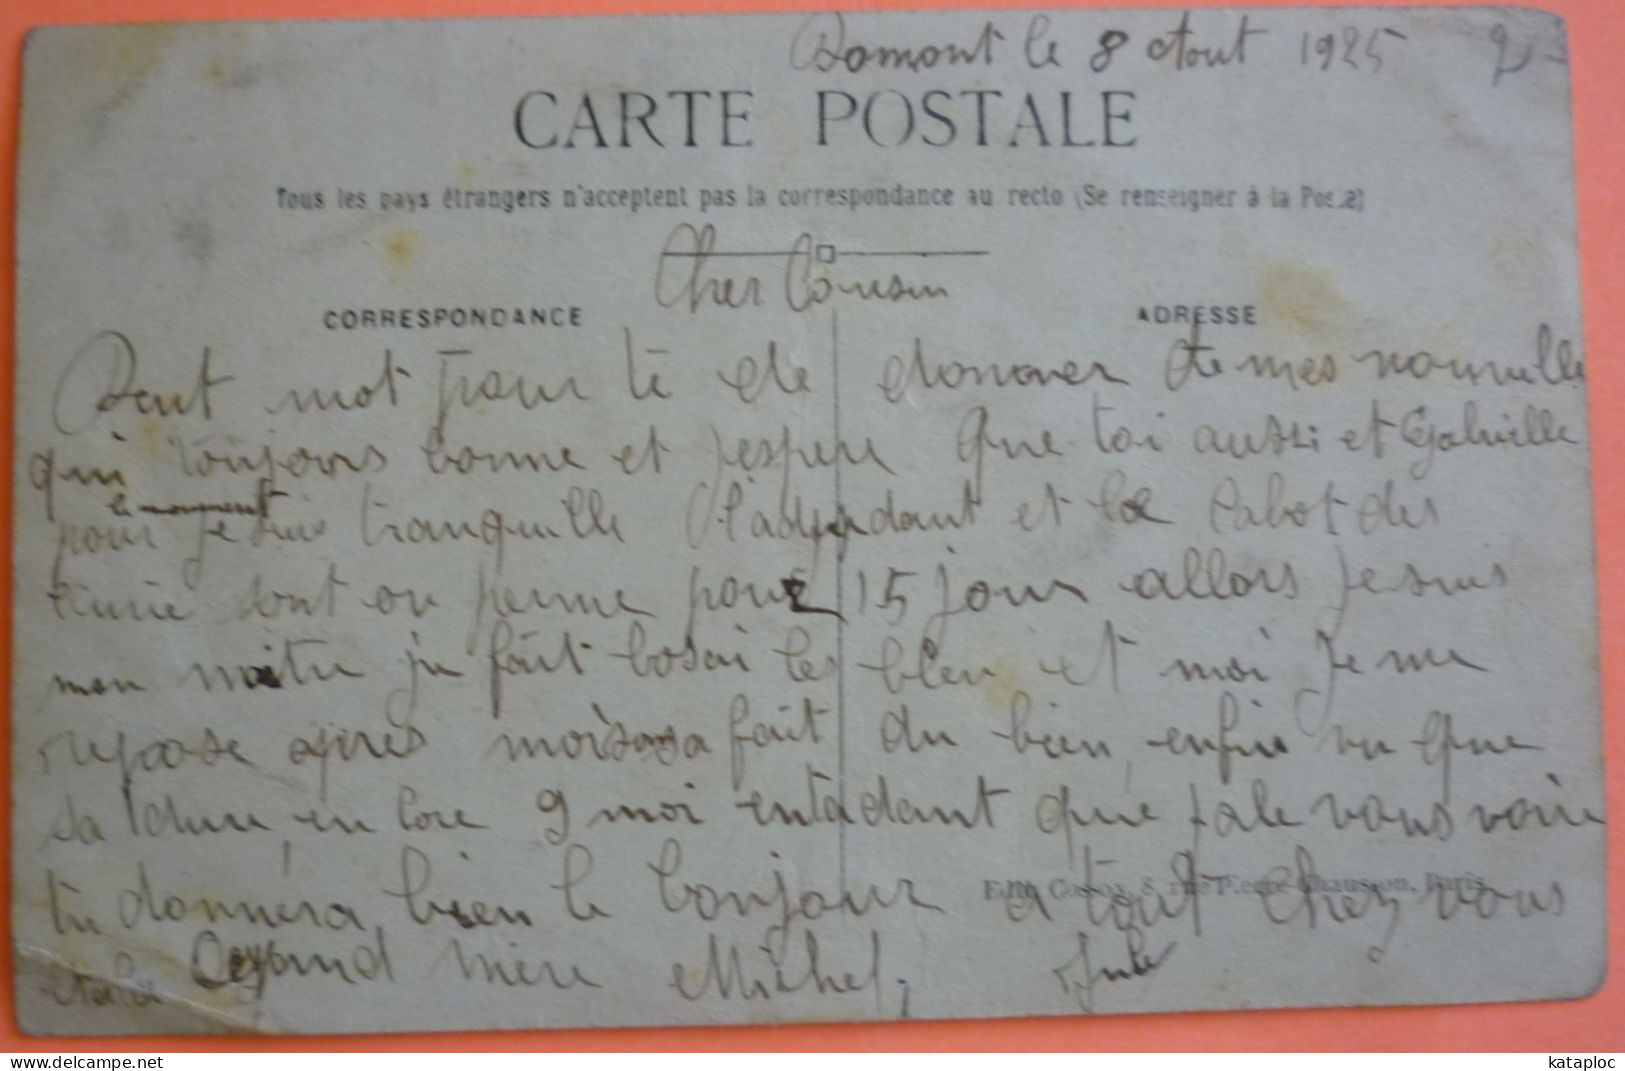 Domont le 8 Aout 1925
CARTE POSTALE
Tous les pays étrangers n'acceptent pas la correspondance au recto (Se renseigner à la Poste)
Cher Cousin
CORRESPONDANCE
ADRESSE
mot pour te de donner de mes nouvelle
qui toujours bonne et j'espere que toi aussi et Gabrielle
le moment
pour je suis tranquille l'adjudant et le Cabot des
sont on perme pour 15 jour allors je suis
mon maitre je fait les bleu et moi je me
repose apres mois sa fait du bien, enfin vu que
sa en core 9 moi entadant que vous voire
tu donnera bien le bonjour a tout chez vous
grand mère Michel, Jule
Edit. 8, rue Pierre Chausson, Paris
kataploc